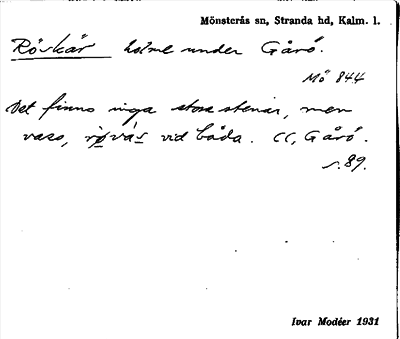 Mönsterås sn, Stranda hd, Kalm. l.
Röskär holme under Gårö.
Mö 844
Det finns inga stora stenar, men
vass, rø̱vás̱ vid båda. CC, Gårö.
s. 89.
Ivar Modéer 1931